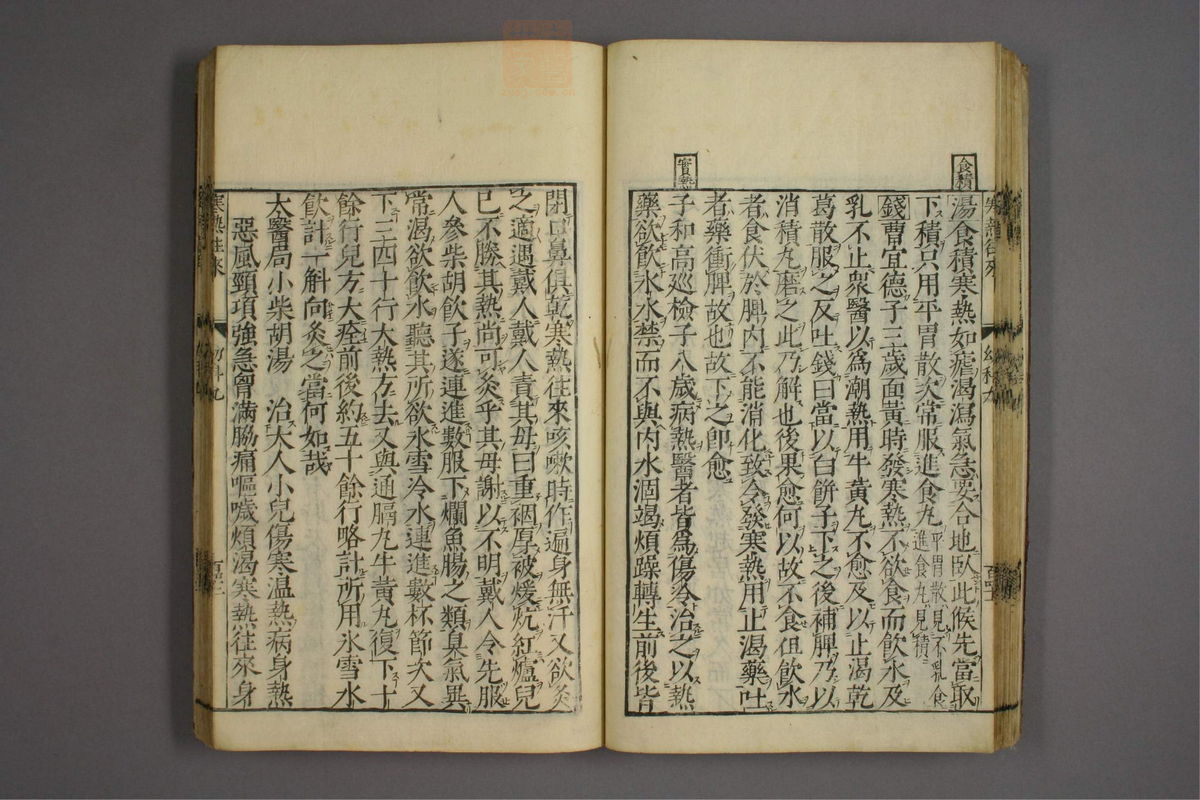 食積
湯食積寒熱如瘧渴瀉氣急要合地臥此候先當取
下積只用平胃散次常服進食丸平胃散見不乳食進食丸見積
錢曹宜德子三歲面黃時發寒熱不欲食而飲水及
乳不止眾醫以爲潮熱用牛黃丸不愈及以止渴乾
葛散服之反吐錢曰當以白餅子下之後補脾乃以
消積丸磨之此乃解也後果愈何以故不食但飲水
者食伏於脾內不能消化致令發寒熱用止渴藥吐
者藥衝脾故也故下之卽愈
實熱
子和高巡檢子八歲病熱醫者皆爲傷冷治之以熱
藥欲飲水水禁而不與內水涸竭煩躁轉生前後皆
閉口鼻俱乾寒熱往來咳嗽時作遍身無汗又欲灸
之適遇戴人戴人責其母曰重裀厚被煖炕紅爐兒
已不勝其熱尚可灸乎其母謝以不明戴人令先服
人參柴胡飲子遂連進數服下爛魚腸之類臭氣異
常渴欲飲水聽其所欲氷雪冷水連進數杯節次又
下三四十行大熱方去又與通膈丸牛黃丸復下十
餘行兒方大痊前後約五十餘行略計所用氷雪水
飲計一斛向灸之當何如哉
太醫局小柴胡湯 治大人小兒傷寒溫熱病身熱
惡風頸項強急胷滿脇痛嘔噦煩渴寒熱往來身
寒熱往來
幼科九